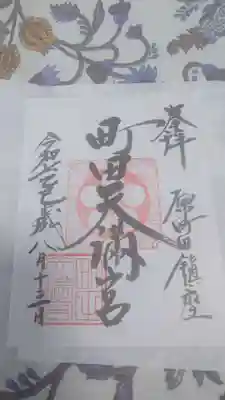 奉拝
原町田鎮座
町田天満宮
令和 歳八月十三日